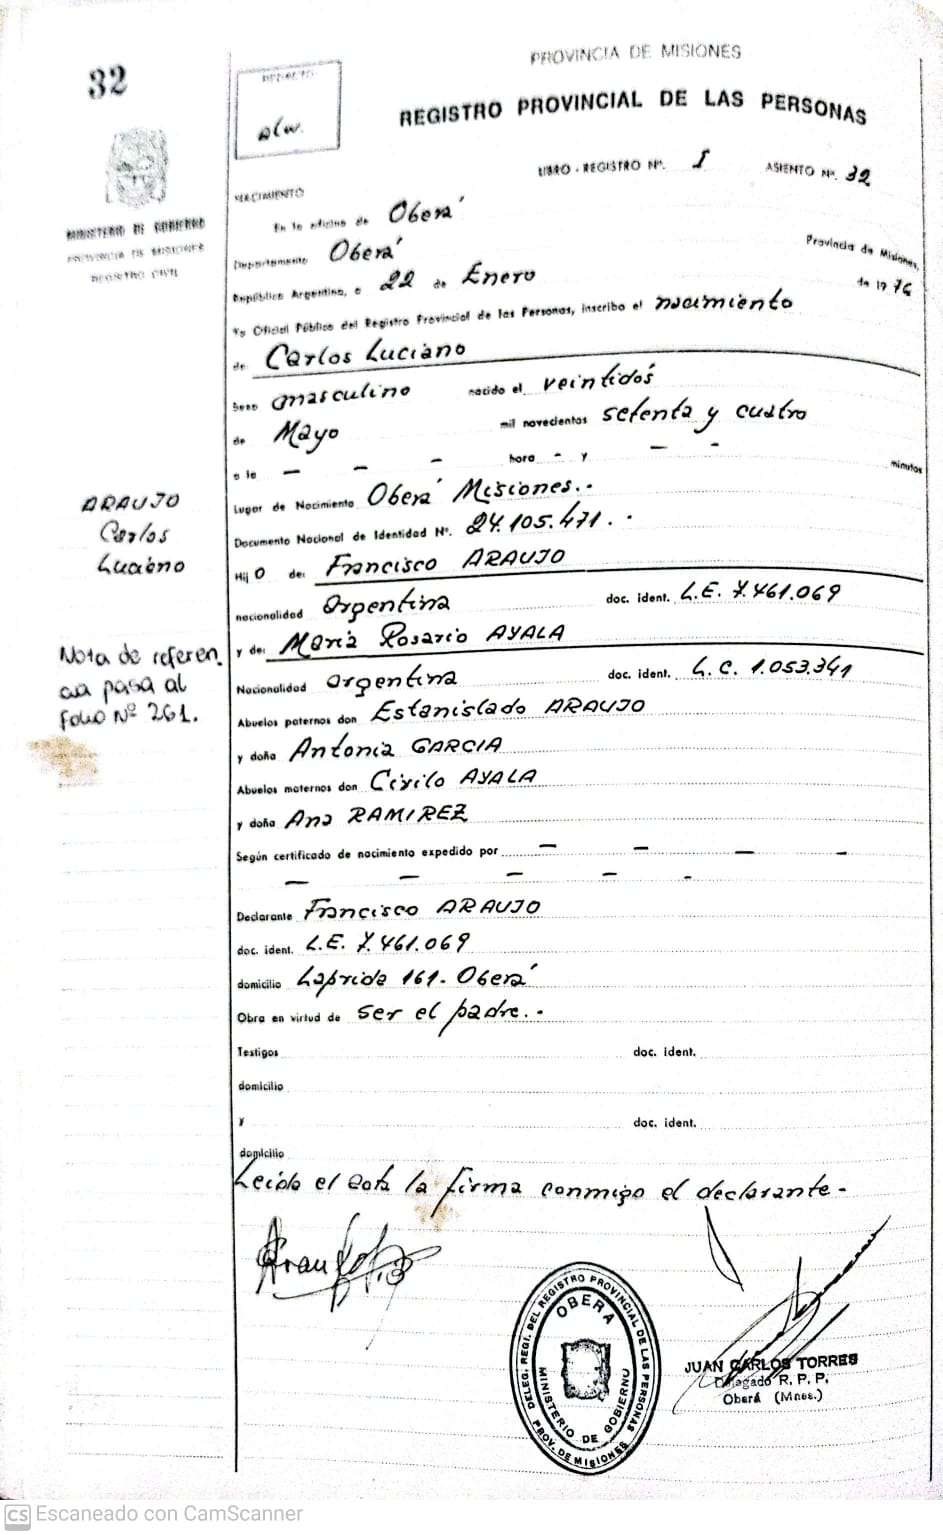 32
PROVINCIA DE MISIONES
REGISTRO PROVINCIAL DE LAS PERSONAS
LIBRO - REGISTRO Nº. I ASIENTO Nº. 32
MINISTERIO DE GOBIERNO
PROVINCIA DE MISIONES
REGISTRO CIVIL
NACIMIENTO
En la oficina de Oberá
Departamento Oberá Provincia de Misiones,
República Argentina, a 22 de Enero de 1976
Yo Oficial Público del Registro Provincial de las Personas, inscribo el nacimiento
de Carlos Luciano
Sexo masculino nacido el veintidós
de Mayo mil novecientos setenta y cuatro
a la — — — hora - y — - minutos
ARAUJO
Carlos
Luciano
Lugar de Nacimiento Oberá Misiones.-
Documento Nacional de Identidad Nº. 24.105.471.-
Hijo de: Francisco ARAUJO
nacionalidad argentina doc. ident. L.E. 7.461.069
y de: María Rosario AYALA
Nacionalidad argentina doc. ident. L.C. 1.053.341
Nota de referen
cia pasa al
folio Nº 261.
Abuelos paternos don Estanislado ARAUJO
y doña Antonia GARCIA
Abuelos maternos don Cirilo AYALA
y doña Ana RAMIREZ
Según certificado de nacimiento expedido por — — — -
— — — — -
Declarante Francisco ARAUJO
doc. ident. L.E. 7.461.069
domicilio Laprida 161- Oberá
Obra en virtud de ser el padre.-
Testigos doc. ident.
domicilio
y doc. ident.
domicilio
Leída el acta la firma conmigo el declarante-
DELEG. REGI. DEL REGISTRO PROVINCIAL DE LAS PERSONAS
OBERA
MINISTERIO DE GOBIERNO
PROV. DE MISIONES
JUAN CARLOS TORRES
Delegado R. P. P.
Oberá (Mnes.)
CS Escaneado con CamScanner